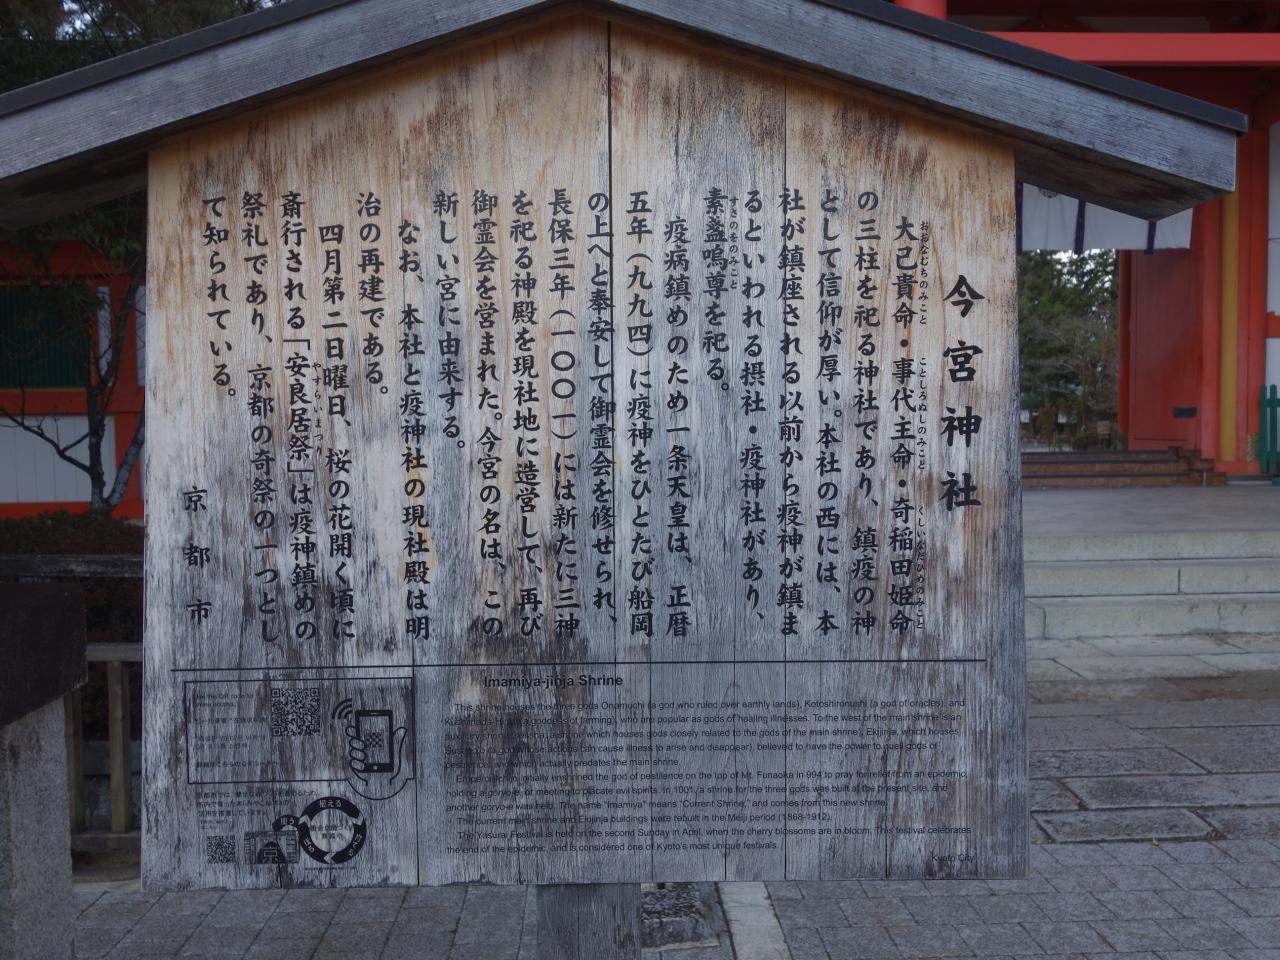 今宮神社
大己貴命・事代主命・奇稲田姫命
おおなむちのみこと ことしろぬしのみこと くしいなだひめのみこと
の三柱を祀る神社であり、鎮疫の神
として信仰が厚い。本社の西には、本
社が鎮座される以前から疫神が鎮ま
るといわれる摂社・疫神社があり、
素盞嗚尊を祀る。
すさのをのみこと
疫病鎮めのため一条天皇は、正暦
五年(九九四)に疫神をひとたび船岡
の上へと奉安して御霊会を修せられ、
長保三年(一〇〇一)には新たに三神
を祀る神殿を現社地に造営して、再び
御霊会を営まれた。今宮の名は、この
新しい宮に由来する。
なお、本社と疫神社の現社殿は明
治の再建である。
四月第二日曜日、桜の花開く頃に
斎行される「安良居祭」は疫神鎮めの
やすらいまつり
祭礼であり、京都の奇祭の一つとし
て知られている。
京都市
Imamiya-jinja Shrine
This shrine houses the three gods Onamuchi (a god who ruled over earthly lands), Kotoshironushi (a god of oracles), and
(a goddess of farming), who are popular as gods of healing illnesses. To the west of the main shrine is an
shrine which houses gods closely related to the gods of the main shrine), Ekijinja, which houses
whose actions can cause illness to arise and disappear), believed to have the power to quell gods of
pestilence, and which actually predates the main shrine.
Emperor Ichijo initially enshrined the god of pestilence on the top of Mt. Funaoka in 994 to pray for relief from an epidemic,
holding a goryo-e, or meeting to placate evil spirits. In 1001, a shrine for the three gods was built at the present site, and
another goryo-e was held. The name "Imamiya" means "Current Shrine," and comes from this new shrine.
The current main shrine and Ekijinja buildings were rebuilt in the Meiji period (1868-1912).
The Yasurai Festival is held on the second Sunday in April, when the cherry blossoms are in bloom. This festival celebrates
the end of the epidemic, and is considered one of Kyoto's most unique festivals.
Kyoto City
伝える